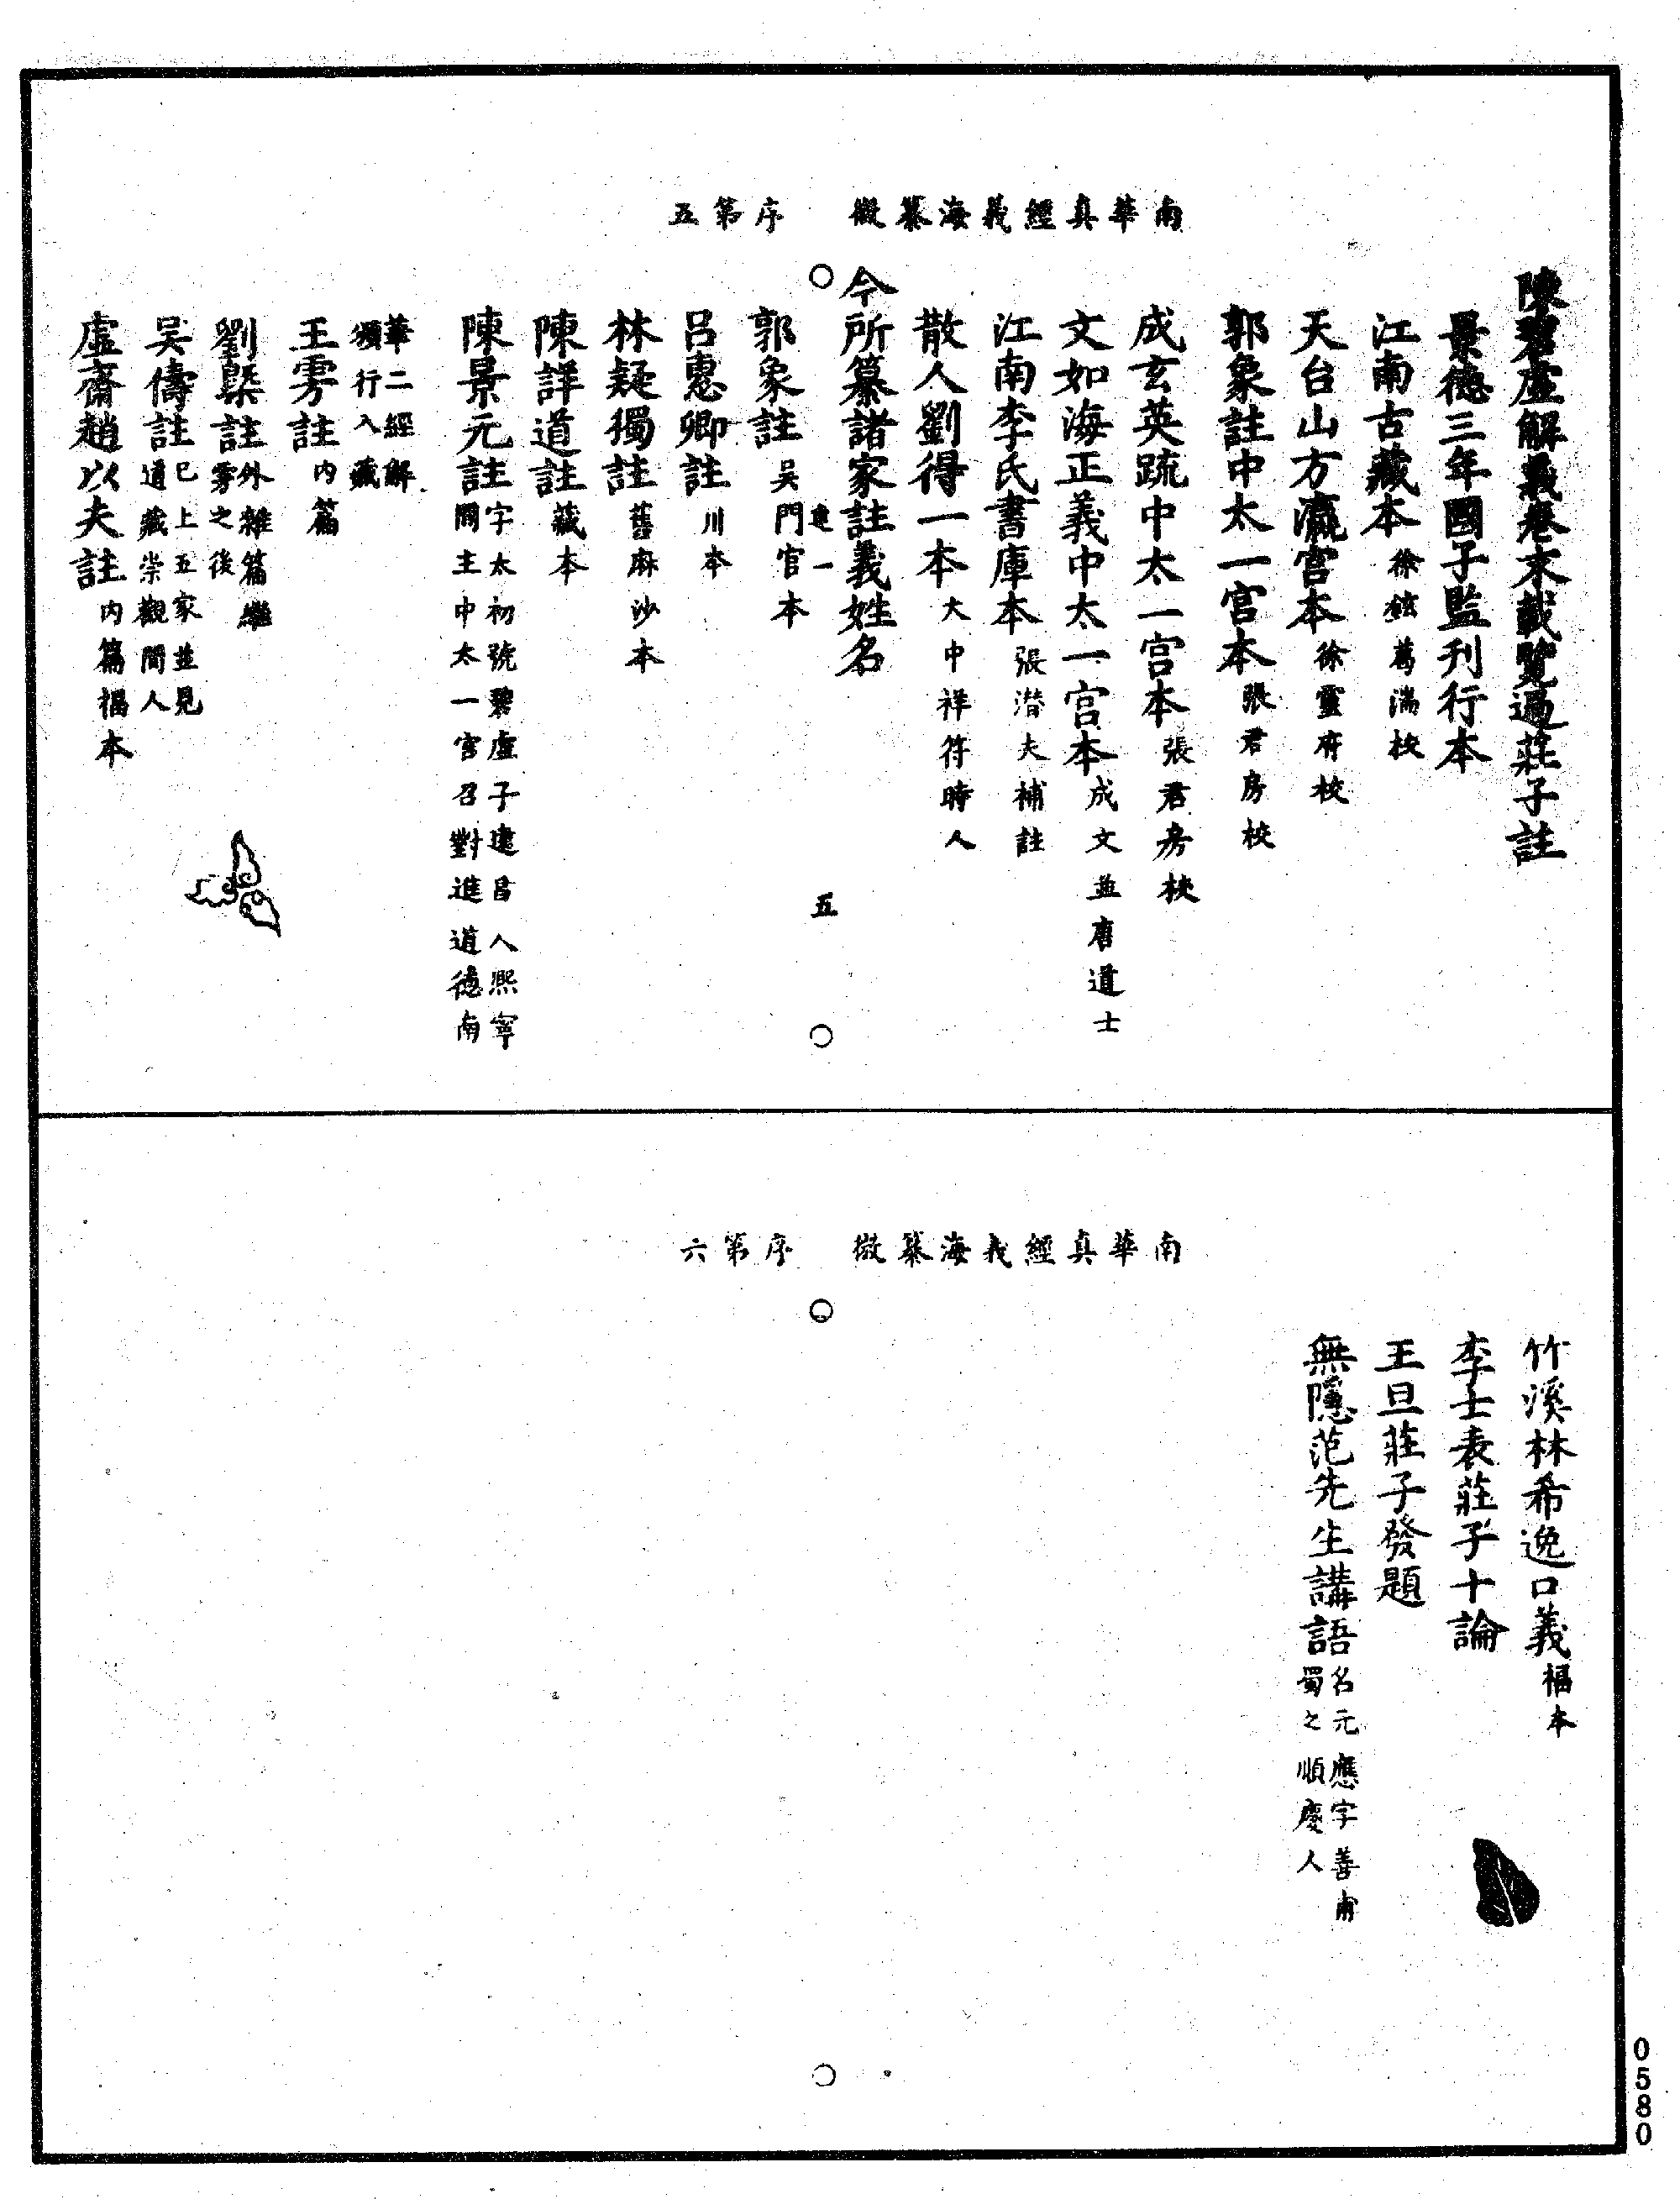 南華真經義海纂微　序第五
陳碧虛解義卷末載覽過莊子註
景德三年國子監刊行本
江南古藏本徐鉉葛湍校
天台山方瀛宮本徐靈府校
郭象註中太一宮本張君房校
成玄英䟽中太一宮本張君房校
文如海正義中太一宮本成文並唐道士
江南李氏書庫本張潛夫補註
散人劉得一本大中祥符時人
今所纂諸家註義姓名
○　建一　五　○
郭象註吳門官本
呂惠卿註川本
林疑獨註舊麻沙本
陳詳道註藏本
陳景元註字太初號碧虛子建昌人熙寧
閒主中太一宮召對進道德南
華二經解
頒行入藏
王雱註內篇
劉槩註外雜篇繼
雱之後
吳儔註已上五家並見
道藏崇觀間人
虛齋趙以夫註內篇福本
南華真經義海纂微　序第六
竹溪林希逸口義福本
李士表莊子十論
王旦莊子發題
無隱范先生講語名元應字善甫
蜀之順慶人
○　○
0580